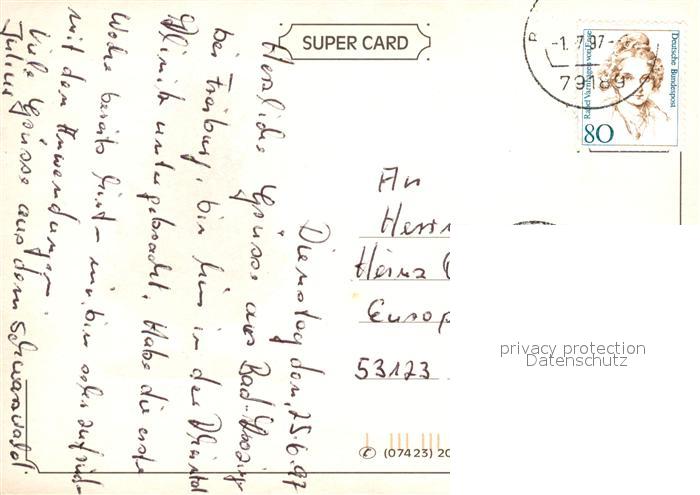 SUPER CARD
-1.7.97-
79189
Deutsche Bundespost
Rahel Varnhagen von Ense
80
Dienstag den, 25.6.97
Herzliche Grüsse aus Bad-Krozingen
bei Freiburg, bin hier in der Rheintal
Klinik untergebracht. Habe die erste
Woche bereits hinter mir, bin sehr zufrieden
mit den Anwendungen.
Viele Grüsse aus dem Schwarzwald.
Julius
An
Herrn
Heinz
Europ
53123
(07423) 20
privacy protection
Datenschutz